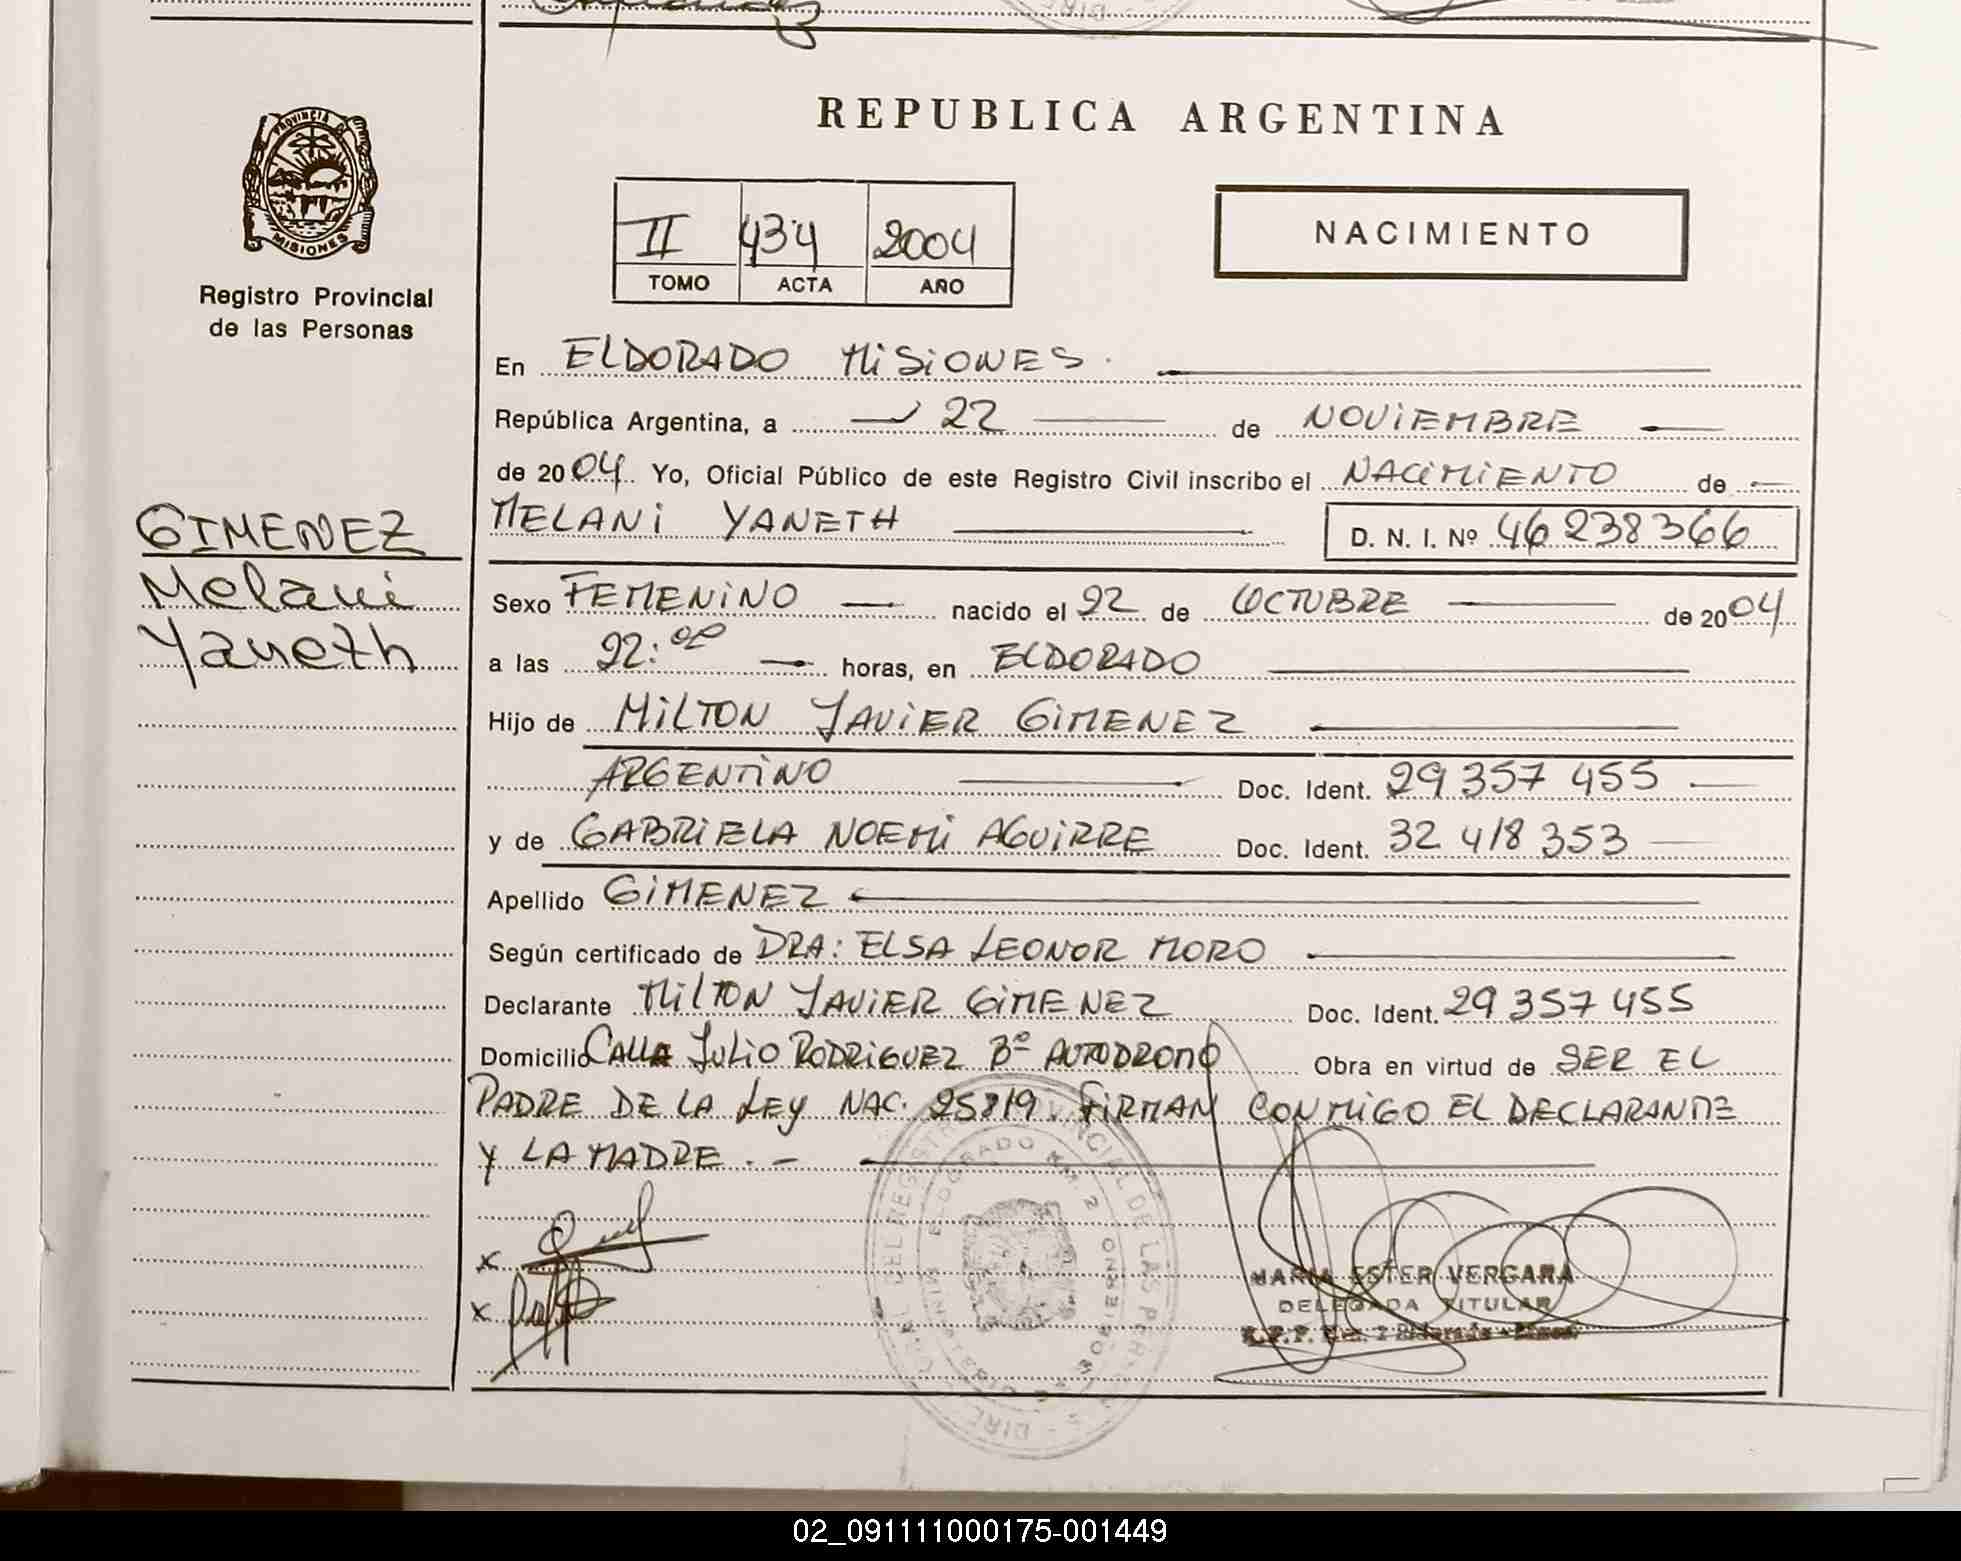 REPUBLICA ARGENTINA
PROVINCIA DE
MISIONES
Registro Provincial
de las Personas
II 434 2004
TOMO ACTA AÑO
NACIMIENTO
En ELDORADO MISIONES.
República Argentina, a 22 de NOVIEMBRE
de 2004. Yo, Oficial Público de este Registro Civil inscribo el NACIMIENTO de
GIMENEZ
Melani
Yaneth
MELANI YANETH D. N. I. Nº 46 238 366
Sexo FEMENINO nacido el 22 de OCTUBRE de 2004
a las 22:00 horas, en ELDORADO
Hijo de MILTON JAVIER GIMENEZ
ARGENTINO Doc. Ident. 29 357 455
y de GABRIELA NOEMI AGUIRRE Doc. Ident. 32 418 353
Apellido GIMENEZ
Según certificado de DRA: ELSA LEONOR MORO
Declarante MILTON JAVIER GIMENEZ Doc. Ident. 29 357 455
Domicilio CALLE JULIO RODRIGUEZ Bº AUTODROMO Obra en virtud de SER EL
PADRE DE LA LEY NAC. 25819. FIRMAN CONMIGO EL DECLARANTE
Y LA MADRE. -
x
x
MARIA ESTER VERGARA
DELEGADA TITULAR
02_091111000175-001449